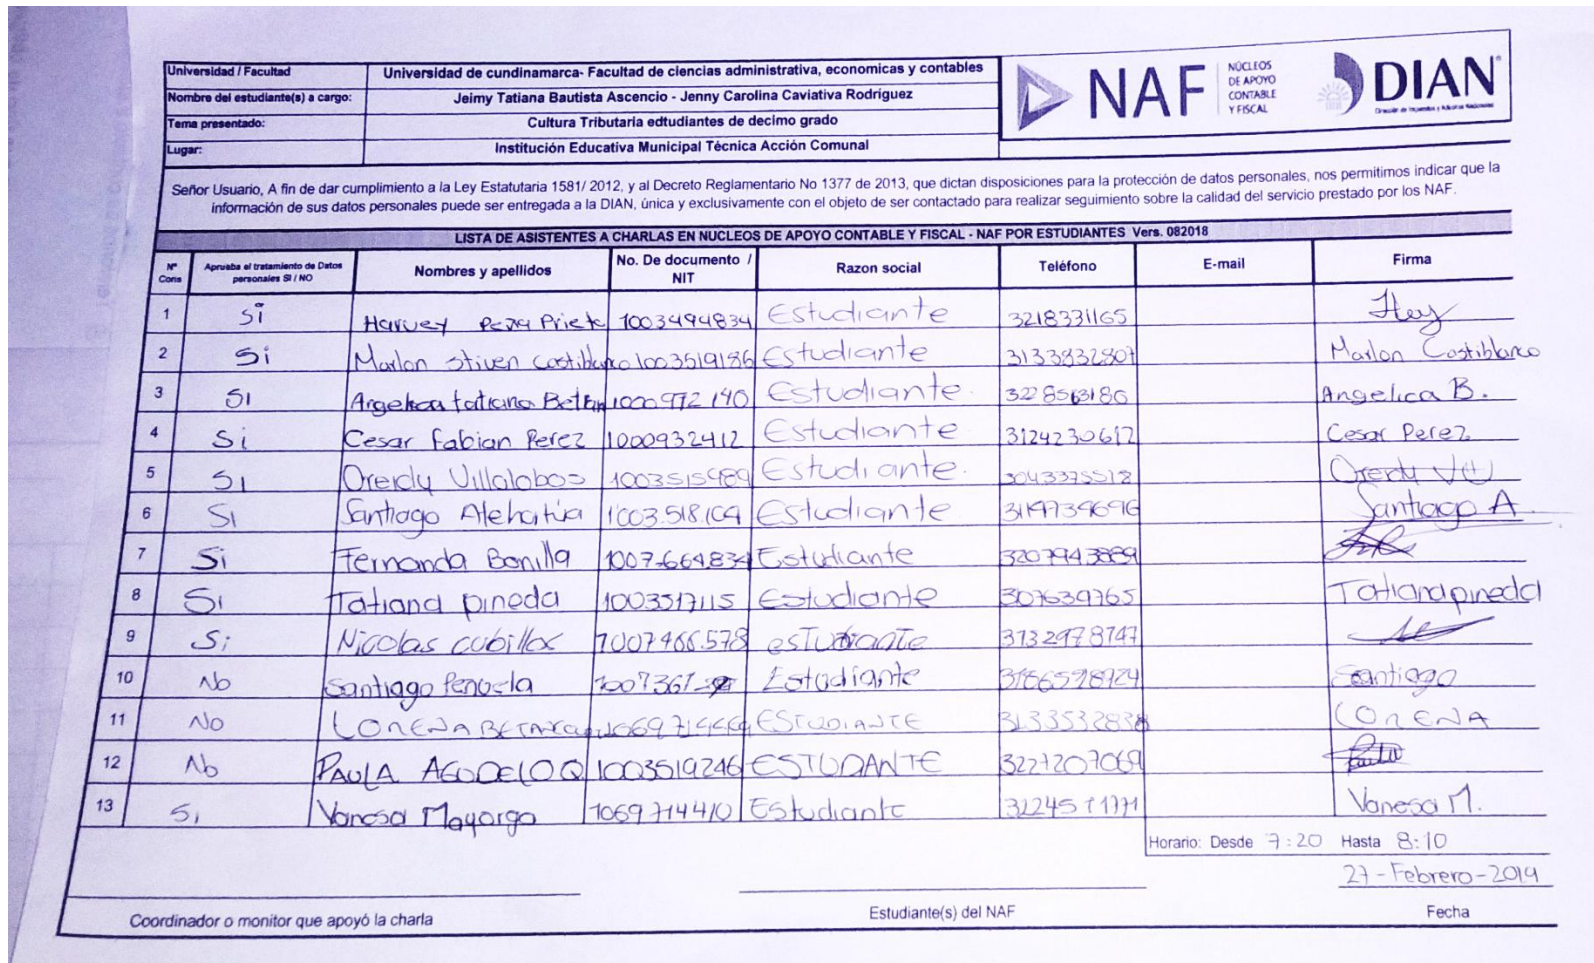 Universidad / Facultad Universidad de cundinamarca- Facultad de ciencias administrativa, economicas y contables
Nombre del estudiante(s) a cargo: Jeimy Tatiana Bautista Ascencio - Jenny Carolina Caviativa Rodriguez
Tema presentado: Cultura Tributaria edtudiantes de decimo grado
Lugar: Institución Educativa Municipal Técnica Acción Comunal
NAF NÚCLEOS DE APOYO CONTABLE Y FISCAL
DIAN
Dirección de Impuestos y Aduanas Nacionales
Señor Usuario, A fin de dar cumplimiento a la Ley Estatutaria 1581/ 2012, y al Decreto Reglamentario No 1377 de 2013, que dictan disposiciones para la protección de datos personales, nos permitimos indicar que la
información de sus datos personales puede ser entregada a la DIAN, única y exclusivamente con el objeto de ser contactado para realizar seguimiento sobre la calidad del servicio prestado por los NAF.
LISTA DE ASISTENTES A CHARLAS EN NUCLEOS DE APOYO CONTABLE Y FISCAL - NAF POR ESTUDIANTES Vers. 082018
Nº Cons Aprueba el tratamiento de Datos personales SI / NO Nombres y apellidos No. De documento / NIT Razon social Teléfono E-mail Firma
1 Si Harvey Prieto 1003494834 Estudiante 3218331165
2 Si Marlon Stiven Castiblanco 1003519186 Estudiante 3133832807 Marlon Castiblanco
3 SI Angelica tatiana 1000972140 Estudiante. Angelica B.
4 Si Cesar Fabian Perez 1000932412 Estudiante 3124230617 Cesar Perez
5 SI Oreidy Villalobos Estudiante.
6 SI Santiago Estudiante Santiago A.
7 Si Fernanda Bonilla 1007664834 Estudiante
8 Si Tatiana pineda 1003517115 Estudiante 307639765 Tatiana pineda
9 Si Nicolas cubillos 1007466.578 estudiante 3132978747
10 No Santiago Penuela Estudiante Santiago
11 No LORENA ESTUDIANTE LORENA
12 No PAULA AGUDELO Q 1003519246 ESTUDANTE 3221207069
13 Si Vanesa Mayorga 1069714410 Estudiante Vanesa M.
Horario: Desde 7:20 Hasta 8:10
27-Febrero-2019
Coordinador o monitor que apoyó la charla Estudiante(s) del NAF Fecha